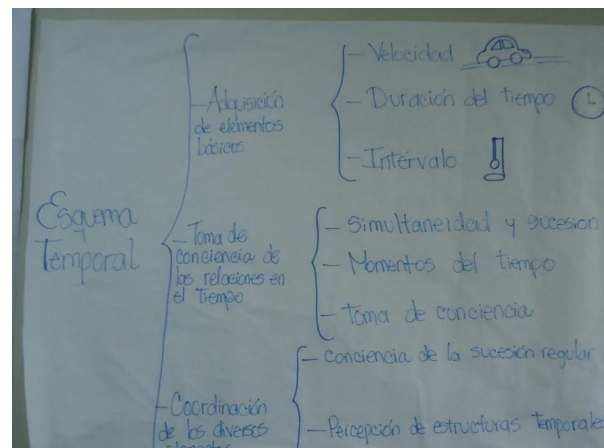 Esquema
Temporal
- Adquisición
de elementos
básicos
- Velocidad
- Duración del tiempo
- Intérvalo
- Toma de
conciencia de
las relaciones en
el Tiempo
- Simultaneidad y sucesion
- Momentos del tiempo
- Toma de conciencia
- Coordinación
de los diversos
elementos
- Conciencia de la sucesión regular
- Percepción de estructuras Temporales